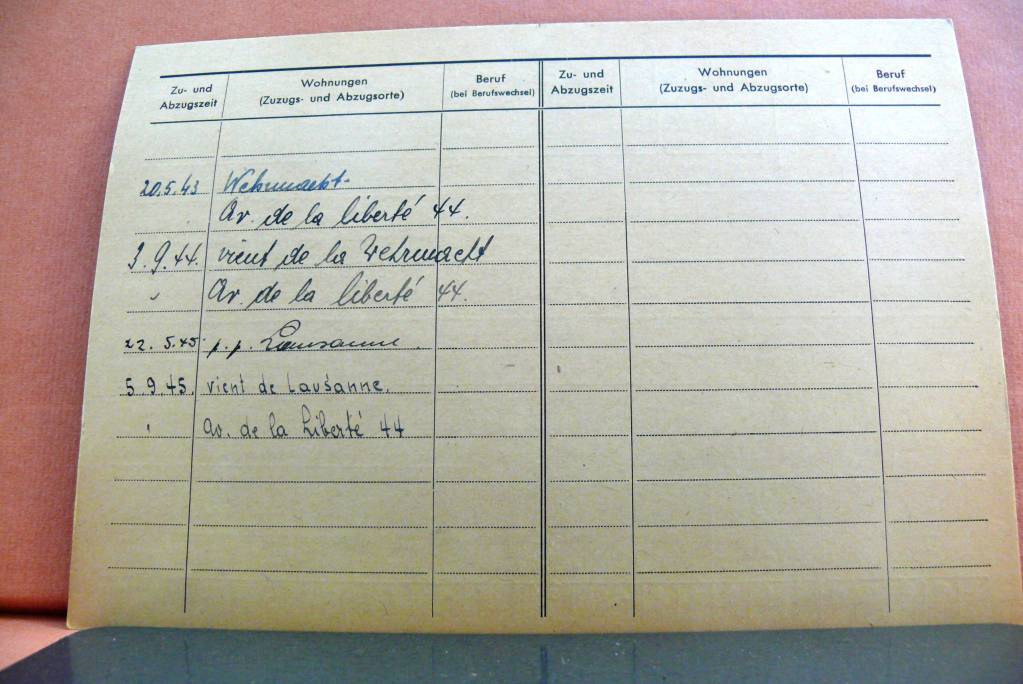 Zu- und Abzugszeit Wohnungen (Zuzugs- und Abzugsorte) Beruf (bei Berufswechsel) Zu- und Abzugszeit Wohnungen (Zuzugs- und Abzugsorte) Beruf (bei Berufswechsel)
20.5.43 Wehrmacht.
Av. de la liberté 44.
3.9.44. vient de la Wehrmacht
" Av. de la liberté 44.
22.5.45 p.p. Lausanne.
5.9.45. vient de Lausanne.
" av. de la Liberté 44